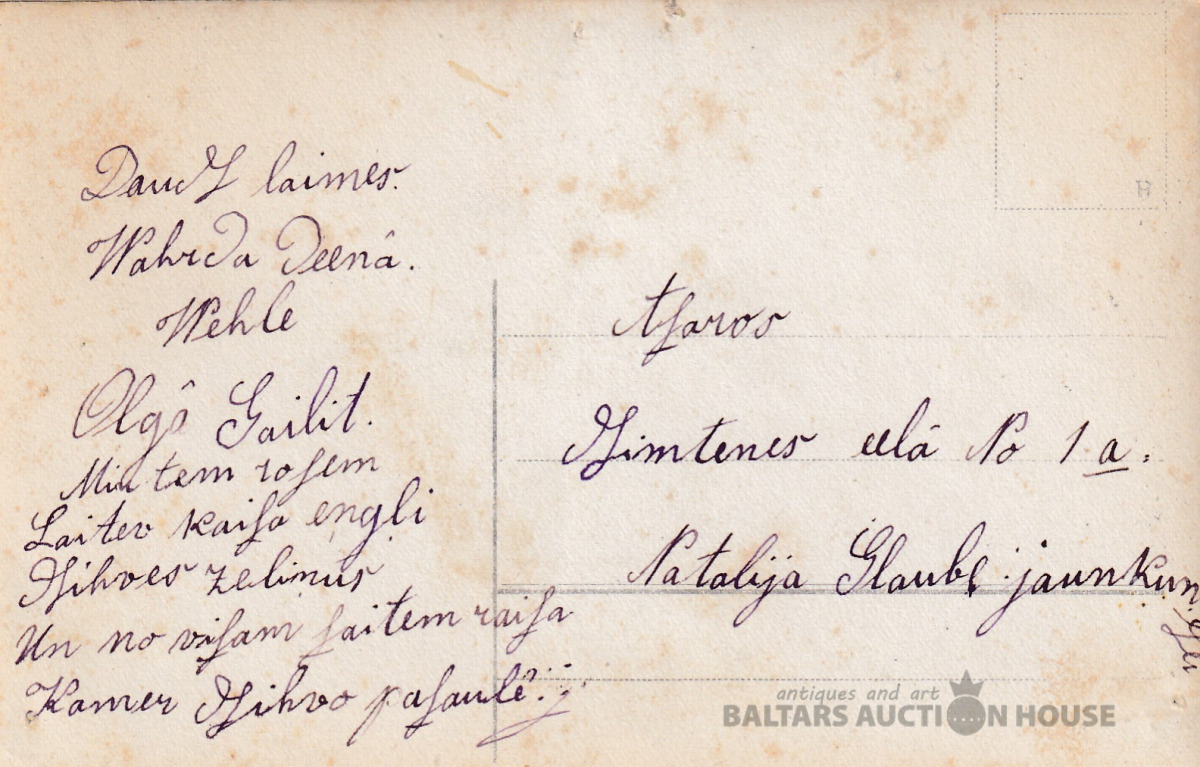 Daudz laimes.
Wahrda deenâ.
Wehle
Olgâ Gailit.
Miu tem rosem
Lai tev kaisa engli
Dsihves zelinus
Un no visam saitem raisa
Kamer Dsihvo pasaulê.
H
Asaros
Dsimtenes eelâ No 1 a.
Natalija Glaube jaunkun
dsei
antiques and art
BALTARS AUCTION HOUSE